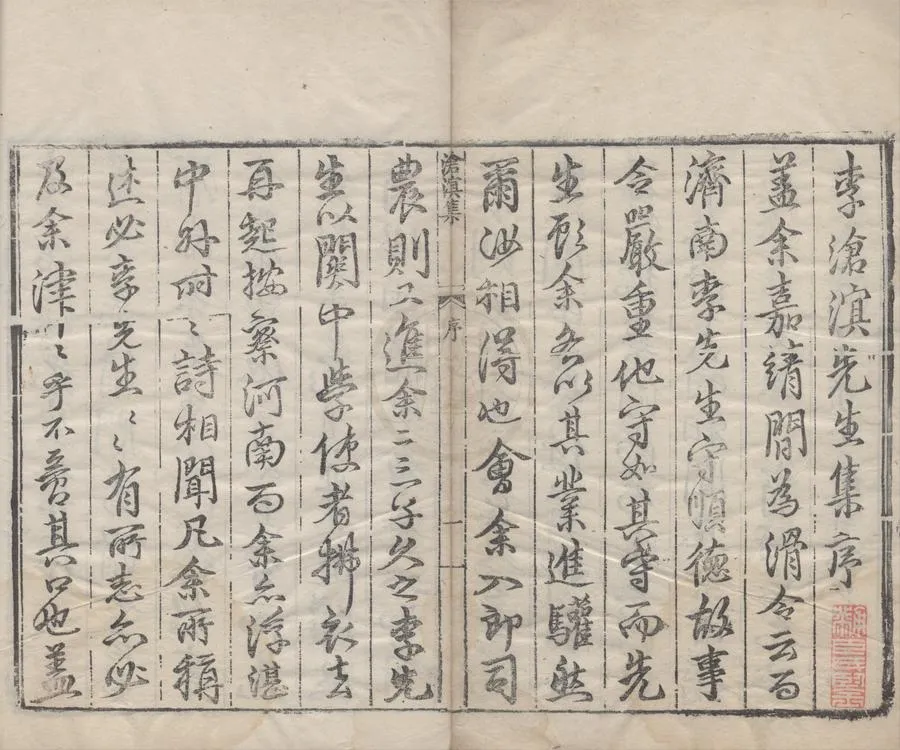 李滄溟先生集序
蓋余嘉靖間為滑令云而
濟南李先生守順德故事
令嚴重他守如其守而先
生顧余各以其業進驩然
爾汝相得也會余入郎司
滄溟集
序
一
農則又進余二三子久之李先
生以關中學使者拂衣去
再起按察河南而余亦浮湛
中外時時詩相聞凡余所稱
述必李先生先生有所志亦必
及余津津乎不啻其口也蓋